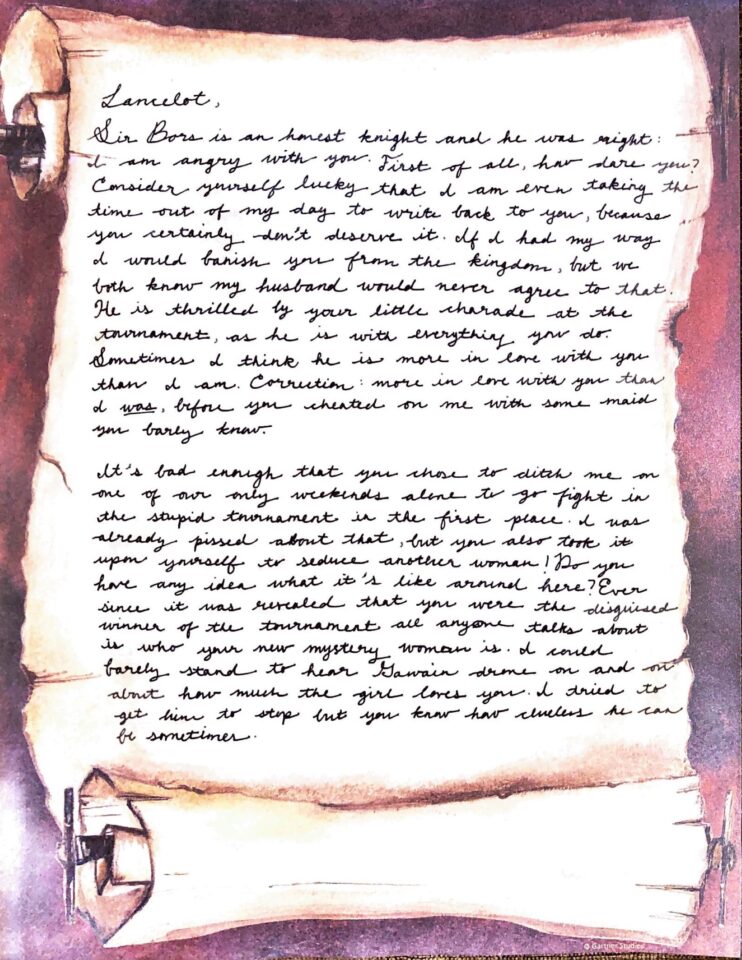 Lancelot,
Sir Bors is an honest knight and he was right:
I am angry with you. First of all, how dare you?
Consider yourself lucky that I am even taking the
time out of my day to write back to you, because
you certainly don't deserve it. If I had my way
I would banish you from the kingdom, but we
both know my husband would never agree to that.
He is thrilled by your little charade at the
tournament, as he is with everything you do.
Sometimes I think he is more in love with you
than I am. Correction: more in love with you than
I was, before you cheated on me with some maid
you barly know.
It's bad enough that you chose to ditch me on
one of our only weekends alone to go fight in
the stupid tournament in the first place. I was
already pissed about that, but you also took it
upon yourself to seduce another woman! Do you
have any idea what it's like around here? Ever
since it was revealed that you were the disguised
winner of the tournament all anyone talks about
is who your new mystery woman is. I could
barely stand to hear Gawain drone on and on
about how much the girl loves you. I tried to
get him to stop but you know how clueless he can
be sometimes.
© Gartner Studios